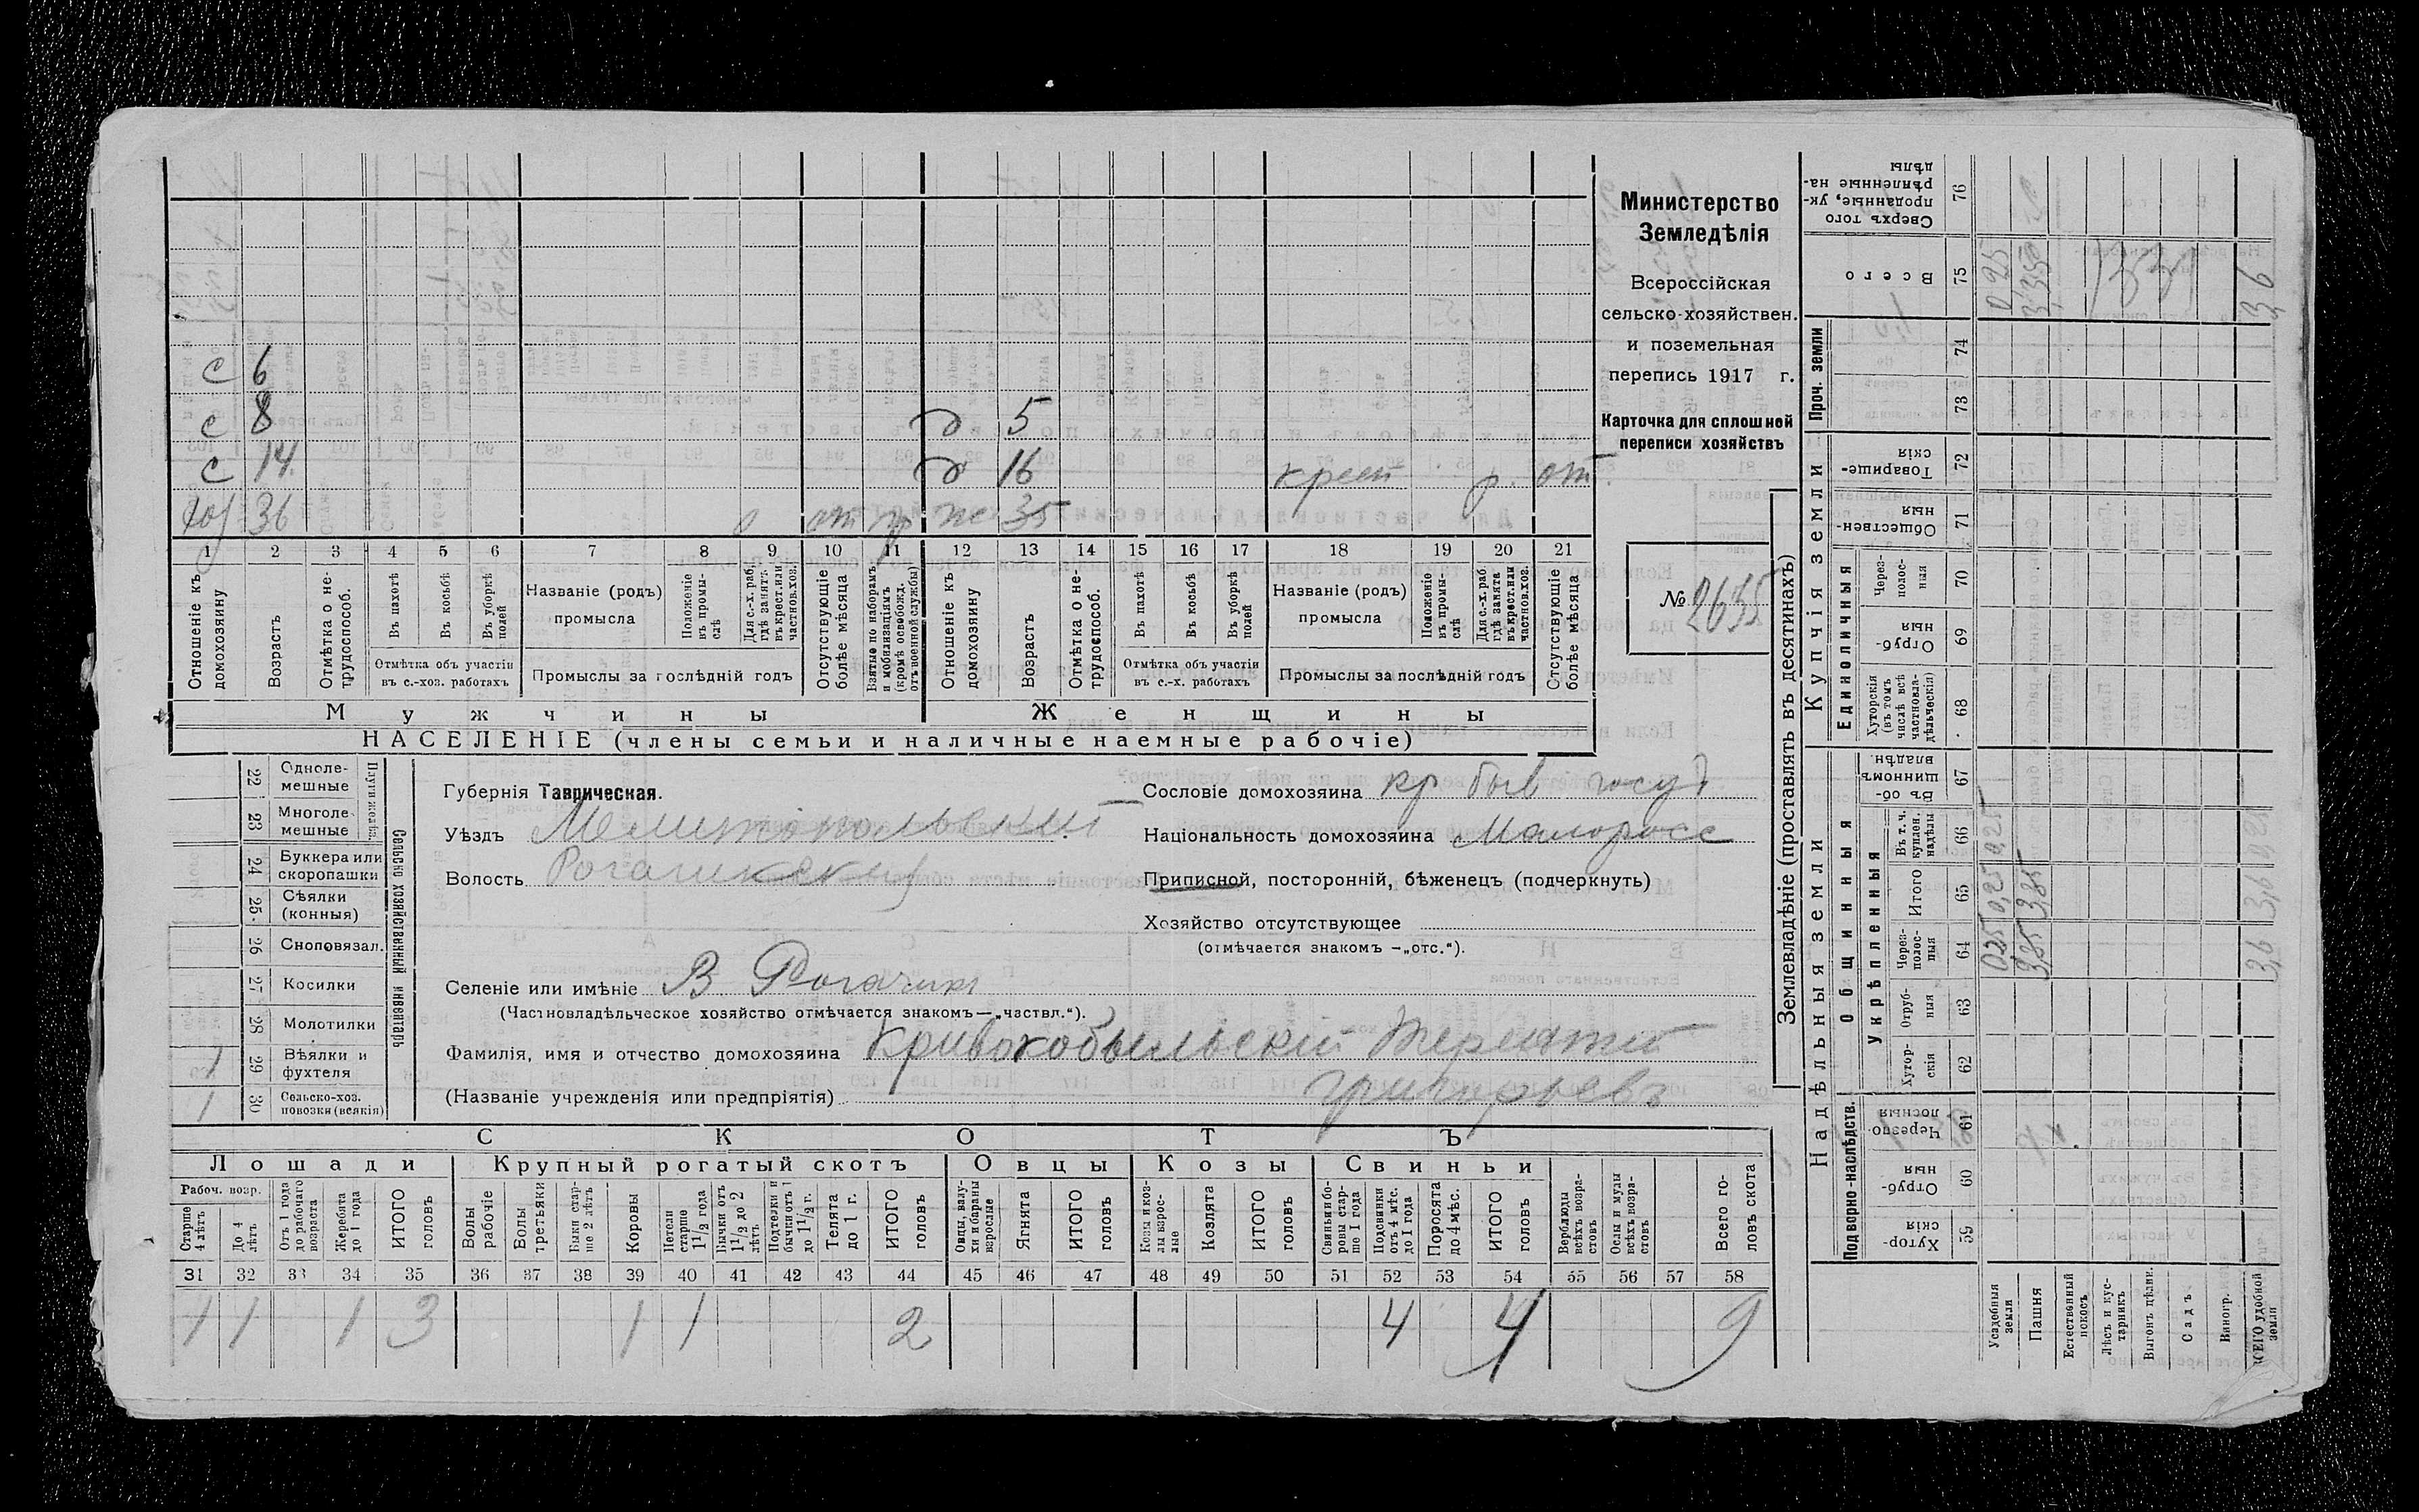 с 6
с 8 д 5
с 14 д 16 крест р. от.
хоз 36 о от пр ж 35
1 2 3 4 5 6 7 8 9 10 11 12 13 14 15 16 17 18 19 20 21
Отношеніе къ домохозяину
Возрасть
Отмѣтка о не-трудоспособ.
Въ пахотѣ
Въ косьбѣ
Въ уборкѣ полей
Отмѣтка объ участіи въ с.-хоз. работахъ
Названіе (родъ) промысла
Положеніе въ промы-слѣ
Для с.-х. раб. гдѣ занятъ въ крест. или частнов. хоз.
Промыслы за послѣдній годъ
Отсутствующіе болѣе мѣсяца
Взятые по наборамъ и мобилизаціямъ (кромѣ освобожд. отъ военной службы)
Отношеніе къ домохозяину
Возрасть
Отмѣтка о не-трудоспособ.
Въ пахотѣ
Въ косьбѣ
Въ уборкѣ полей
Отмѣтка объ участіи въ с.-х. работахъ
Названіе (родъ) промысла
Положеніе въ промы-слѣ
Для с.-х. раб. гдѣ занята въ крест. или частнов. хоз.
Промыслы за послѣдній годъ
Отсутствующіе болѣе мѣсяца
Мужчины Женщины
НАСЕЛЕНІЕ (члены семьи и наличные наемные рабочіе)
Министерство
Земледѣлія
Всероссійская
сельско-хозяйствен.
и поземельная
перепись 1917 г.
Карточка для сплошной
переписи хозяйствъ
№ 2635
Сельско хозяйственный инвентарь
Плуги желѣз.
22 Одноле-мешные
23 Многоле-мешные
24 Буккера или скоропашки
25 Сѣялки (конныя)
26 Сноповязал.
27 Косилки
28 Молотилки
1 29 Вѣялки и фухтеля
1 30 Сельско-хоз. повозки (всякія)
Губернія Таврическая.
Уѣздъ Мелитопольскій
Волость Рогачикскій
Селеніе или имѣніе В. Рогачик
(Частновладѣльческое хозяйство отмѣчается знакомъ—„частвл.“).
Фамилія, имя и отчество домохозяина Кривокобыльскій Терентій
(Названіе учрежденія или предпріятія) Григорьевъ
Сословіе домохозяина кр быв госуд
Національность домохозяина Малоросс
Приписной, посторонній, бѣженецъ (подчеркнуть)
Хозяйство отсутствующее
(отмѣчается знакомъ —„отс.“).
СКОТЪ
Лошади Крупный рогатый скотъ Овцы Козы Свиньи
Рабоч. возр.
Старше 4 лѣтъ
До 4 лѣтъ
Отъ 1 года до рабочаго возраста
Жеребята до 1 года
ИТОГО головъ
Волы рабочіе
Волы третьяки
Быки стар-ше 2 лѣтъ
Коровы
Нетели старше 1 1/2 года
Бычки отъ 1 1/2 до 2 лѣтъ
Подтелки и бычки отъ 1 до 1 1/2 г.
Телята до 1 г.
ИТОГО головъ
Овцы, валу-хи и бараны взрослые
Ягнята
ИТОГО головъ
Козы и коз-лы взрос-лые
Козлята
ИТОГО головъ
Свиньи и бо-ровы стар-ше 1 года
Подсвинки отъ 4 мѣс. до 1 года
Поросята до 4 мѣс.
ИТОГО головъ
Верблюды всѣхъ возра-стовъ
Ослы и мулы всѣхъ возра-стовъ
Всего го-ловъ скота
31 32 33 34 35 36 37 38 39 40 41 42 43 44 45 46 47 48 49 50 51 52 53 54 55 56 57 58
1 1 1 3 1 1 2 4 4 9
Землевладѣніе (проставлять въ десятинахъ)
Надѣльныя земли Купчія земли Проч. земли
Подворно-наслѣдств. Общинныя Единоличныя
Укрѣпленныя
Хутор-скія 59
Отруб-ныя 60
Черезпо-лосныя 61
Хутор-скія 62
Отруб-ныя 63
Через-полос-ныя 64
Итого 65
Въ т. ч. куплен. надѣлы 66
Въ об-щинномъ владѣн. 67
Хуторскія (въ томъ числѣ всѣ частновла-дѣльческія) 68
Отруб-ныя 69
Через-полос-ныя 70
Обществен-ныя 71
Товарище-скія 72
73
74
Всего 75
Сверхъ того проданные, ук-рѣпленные на-дѣлы 76
Усадебная земля 0,25 0,25 0,25
Пашня 3,35 3,35 3,35
Естественный покосъ
Лѣсъ и кус-тарникъ
Выгонъ цѣлин.
Садъ
Виногр.
ВСЕГО удобной земли 3,6 3,6 0,25 3,6